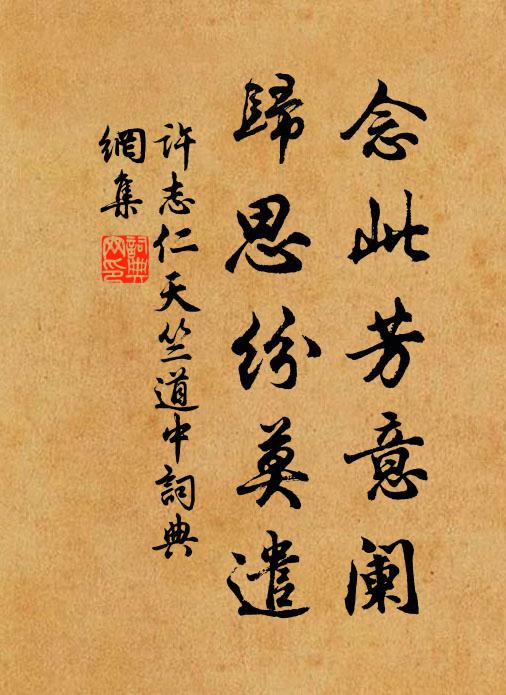 念此芳意阑
歸思纷莫遣
许志仁天竺道中詞典
網集
詞典网印